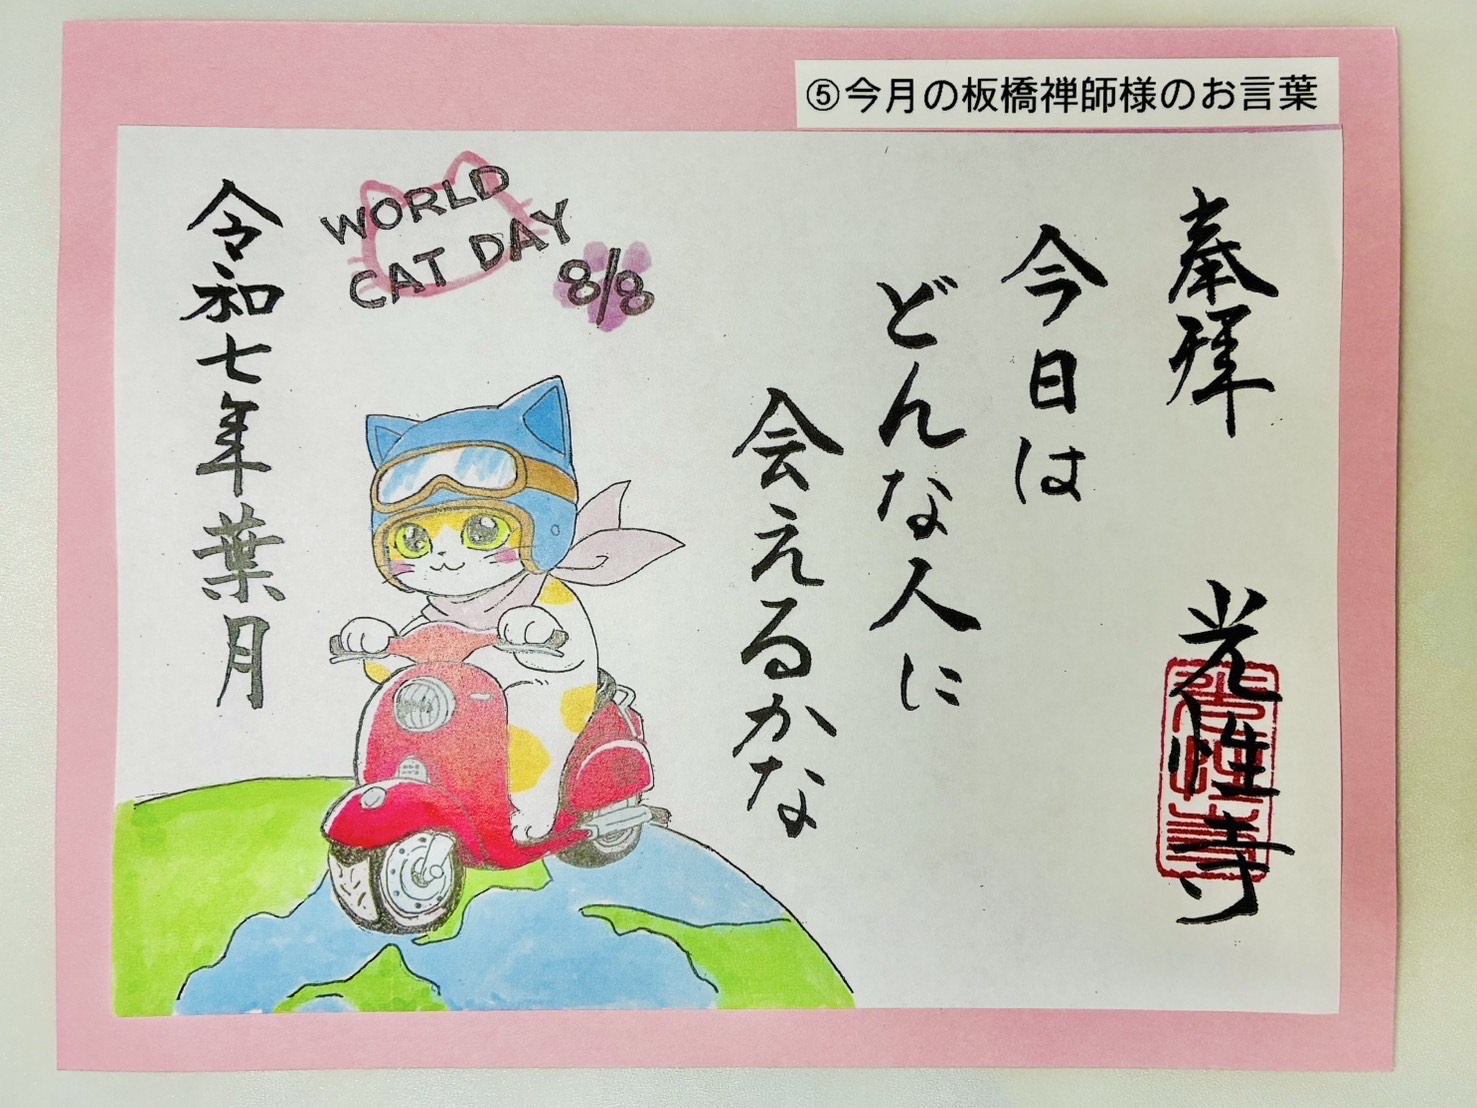 ⑤今月の板橋禅師様のお言葉
奉拝 光性寺
今日は
どんな人に
会えるかな
WORLD
CAT DAY
8/8
令和七年葉月